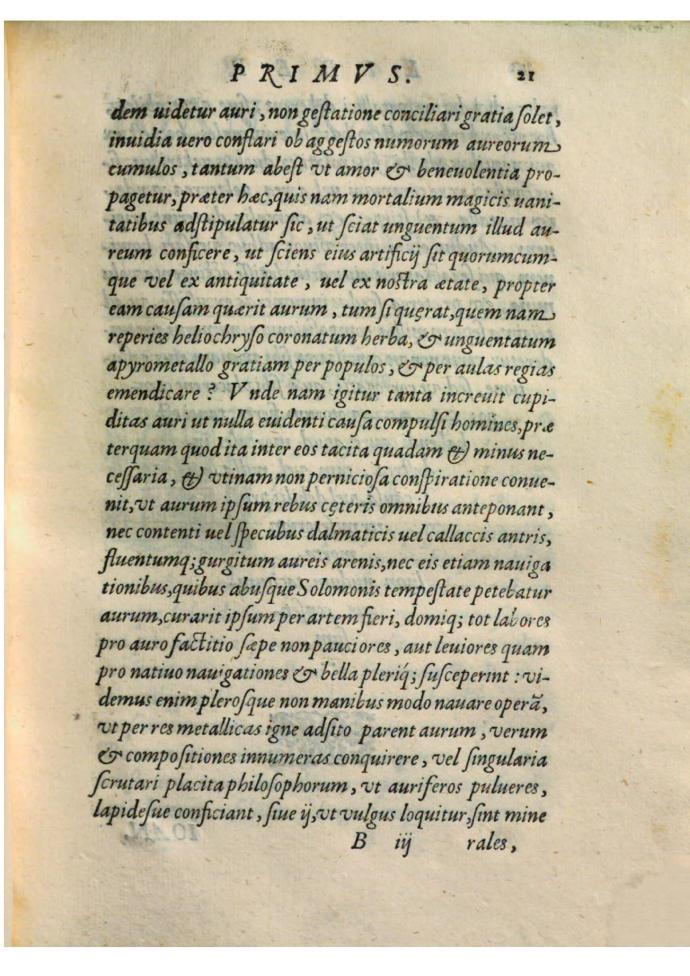 PRIMVS. 21
dem uidetur auri, non gestatione conciliari gratia solet,
inuidia uero conflari ob aggestos numorum aureorum
cumulos, tantum abest vt amor & beneuolentia pro-
pagetur, præter hæc, quis nam mortalium magicis uani-
tatibus adstipulatur sic, ut sciat unguentum illud au-
reum conficere, ut sciens eius artificij sit quorumcum-
que vel ex antiquitate, uel ex nostra ætate, propter
eam causam quærit aurum, tum si quęrat, quem nam
reperies heliochryso coronatum herba, & unguentatum
apyrometallo gratiam per populos, & per aulas regias
emendicare? Vnde nam igitur tanta increuit cupi-
ditas auri ut nulla euidenti causa compulsi homines, præ
terquam quod ita inter eos tacita quadam & minus ne-
cessaria, & vtinam non perniciosa conspiratione conue-
nit, vt aurum ipsum rebus cęteris omnibus anteponant,
nec contenti uel specubus dalmaticis uel callaccis antris,
fluentumq; gurgitum aureis arenis, nec eis etiam nauiga
tionibus, quibus abusque Solomonis tempestate petebatur
aurum, curarit ipsum per artem fieri, domiq; tot labores
pro auro factitio sæpe non pauciores, aut leuiores quam
pro natiuo nauigationes & bella pleriq; susceperint: vi-
demus enim plerosque non manibus modo nauare operã,
vt per res metallicas igne adsito parent aurum, verum
& compositiones innumeras conquirere, vel singularia
scrutari placita philosophorum, vt auriferos pulueres,
lapidesue conficiant, siue ij, vt vulgus loquitur, sint mine
B iij rales,